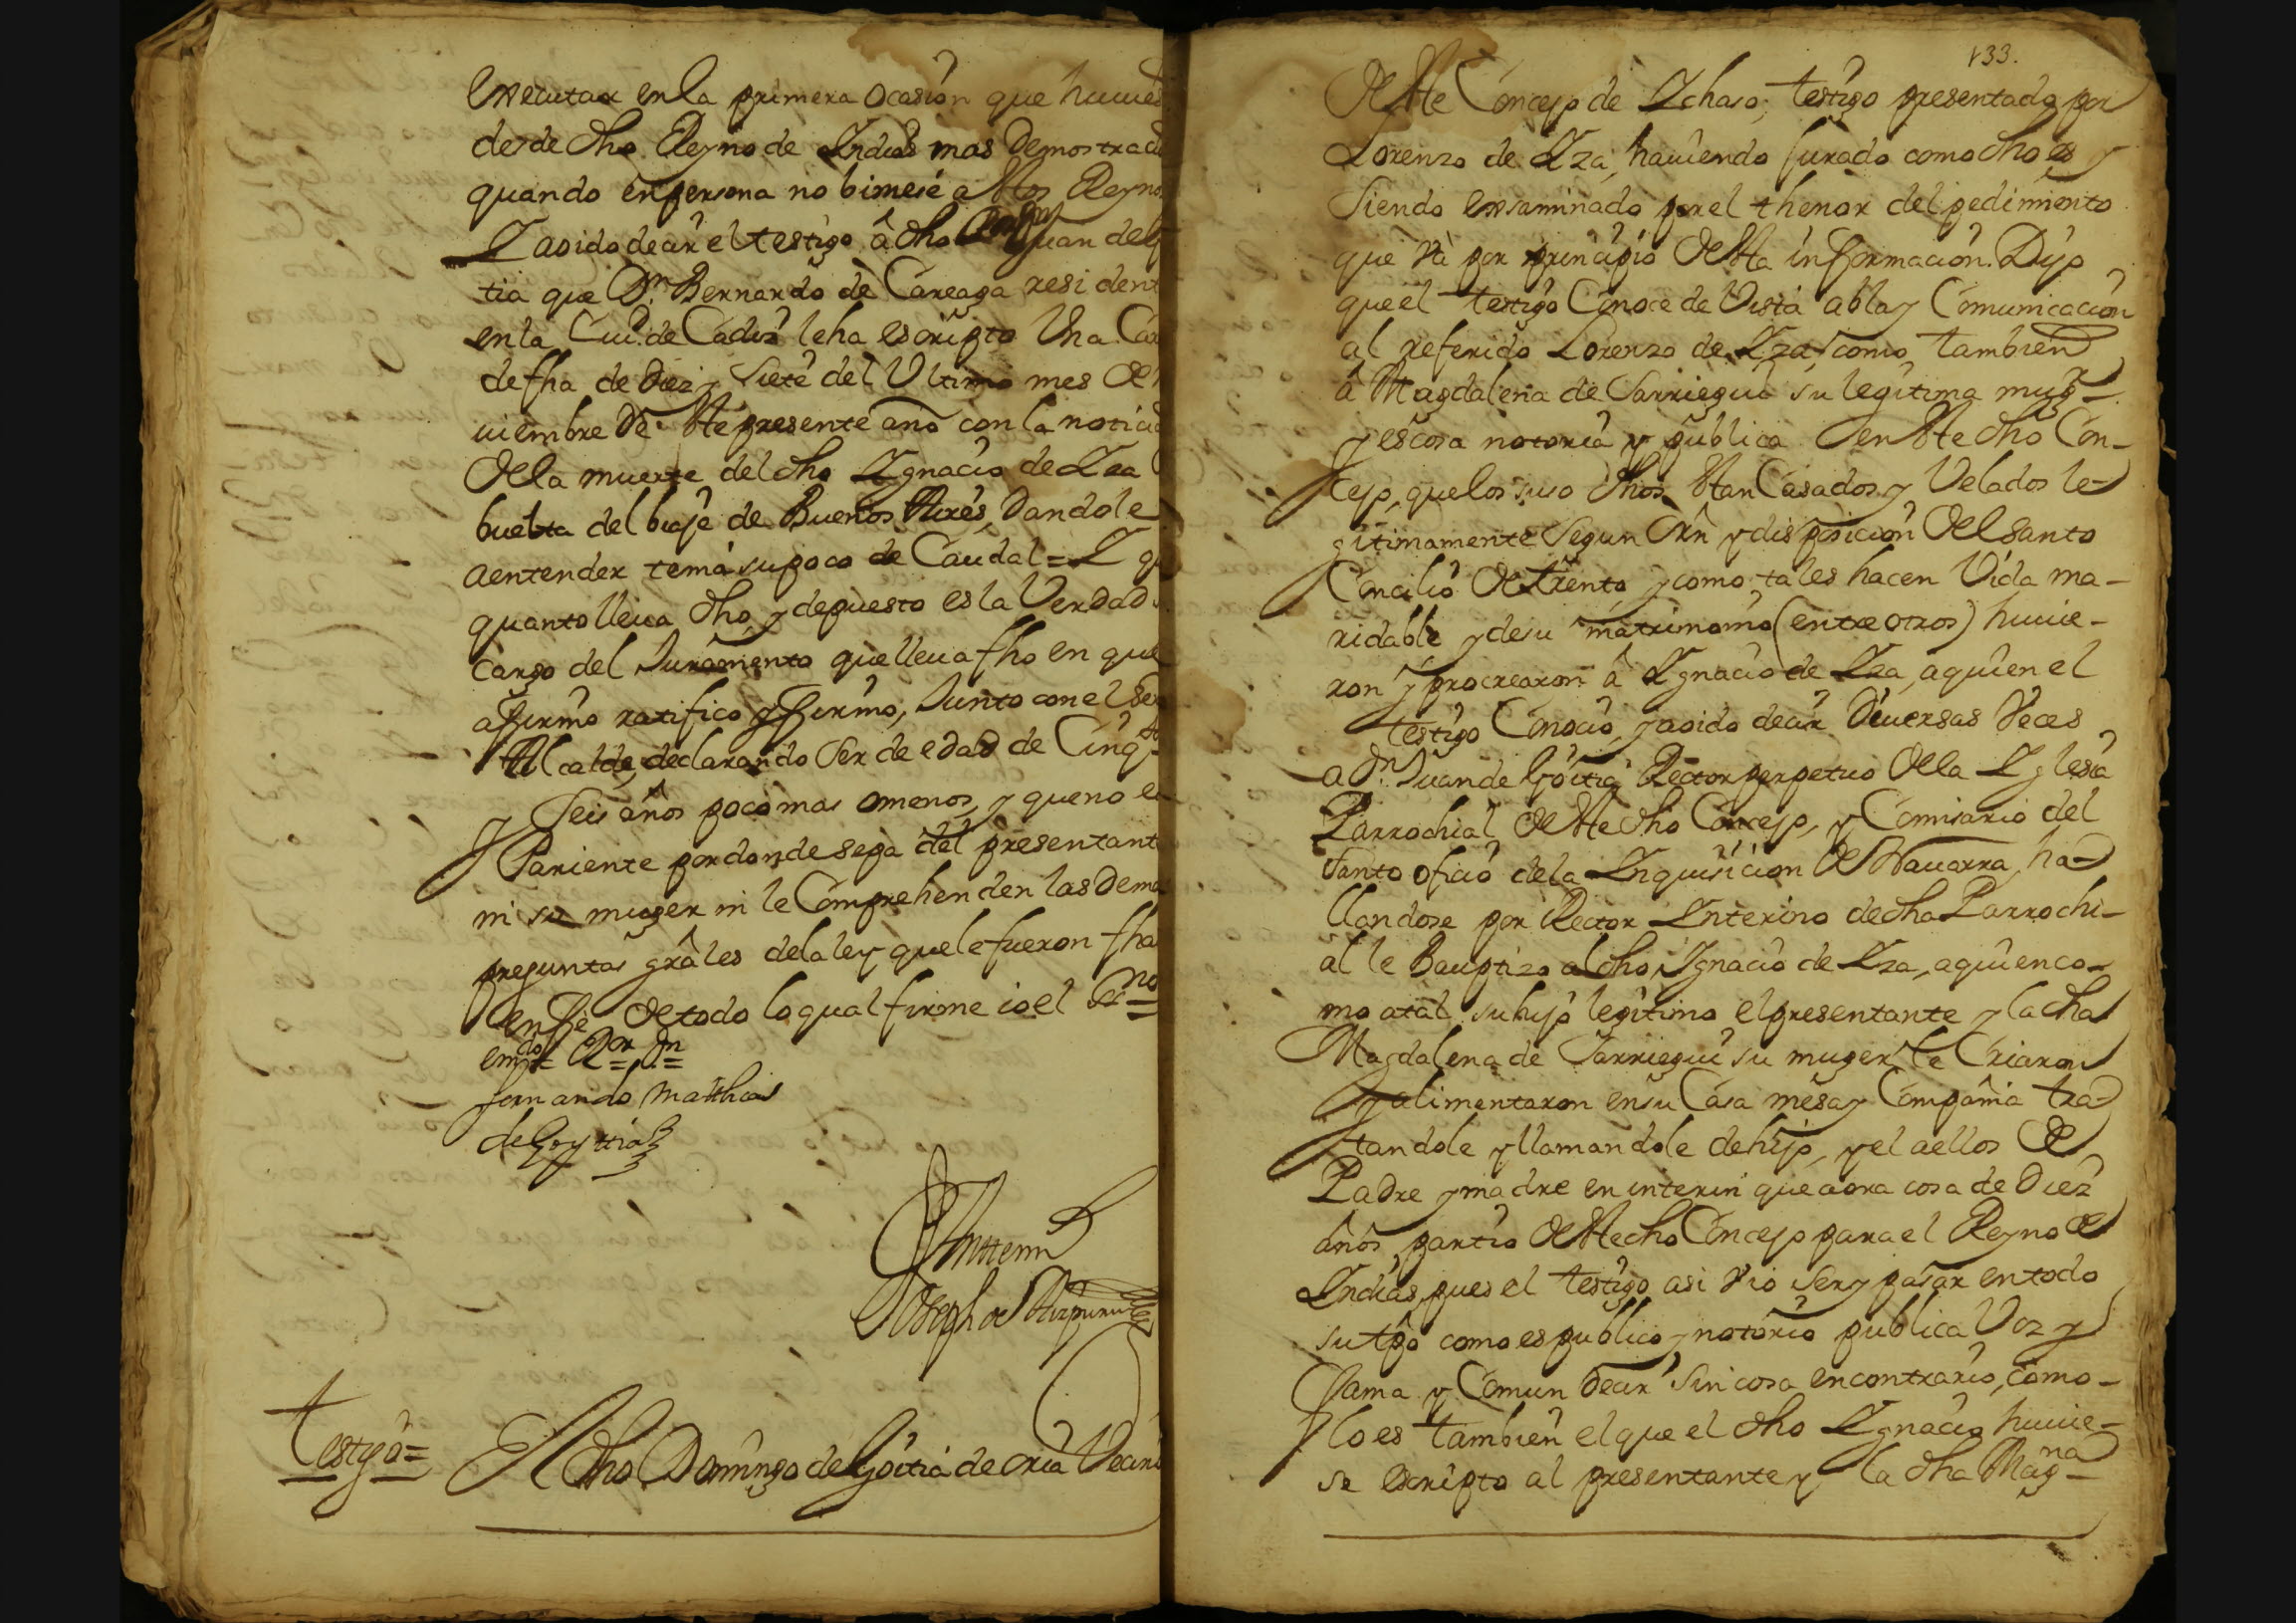 executar en la primera ocasion que huuies
desde dho Reyno de Indias mas demostrad
quando en persona no biniese a estos Reyno
I a oido decir el testigo â dho Juan de
tia que Dn. Bernardo de Careaga resident
en la Ciud. de Cadiz le ha escripto Una Car
de fha de Diez y siete del Ultimo mes de
uiembre de este presente año con la notici
de la muerte del dho Ygnacio de Yza
buelta del biaje de Buenos Aires, Dandole
a entender tenia su poco de Caudal = I q
quanto lleua dho y depuesto es la Verdad
cargo del Juramento que lleua fho en que
afirmo ratifico y firmo, Junto con el Se
Alcalde, declarando Ser de edad de Cinqta
y Seis años poco mas o menos, y que no e
Pariente por donde sepa del presentant
ni su muger ni le Comprehenden las Dema
preguntas grâles de la ley que le fueron fha
en fee de todo lo qual firme io el Scno
emdo = Ror Dn =
fernando Matthias
de Goyttia
Antemi
Joseph de Aizpuru
Testigo =
El dho Domingo de Goitia de oria Vecin
133.
de este Concejo de Ychaso, testigo presentado por
Lorenzo de Yza, hauiendo Jurado como dho es y
Siendo exsaminado por el thenor del pedimiento
que vâ por principio de esta informacion. Dijo
que el testigo Conoce de Vista abla y Comunicacion
al referido Lorenzo de Yza, como tambien
â Magdalena de Sarriegui su legitima mugr
y es cosa notoria y publica en este dho Con-
cejo, que los suso dhos estan Casados y Velados le-
gitimamente Segun orn y disposicion del santo
Concilio de Trento, y como tales hacen Vida ma-
ridable y de su matrimonio (entre otros) huuie-
ron y procrearon â Ygnacio de Yza, a quien el
testigo Conocio, y a oido decir Diuersas Veces
a Dn. Juan de Goitia Rector perpetuo de la Yglesia
Parrochial de este dho Concejo, y Comisario del
Santo oficio de la Inquisicion de Nauarra, ha-
llandose por Rector Interino de dha Parrochi-
al le Bauptizo al dho Ygnacio de Yza, a quien co-
mo atal su hijo legitimo el presentante y la dha
Magdalena de Sarriegui su muger le Criaron
y alimentaron en su Casa mesa y Compañia tra-
tandole y llamandole de hijo, y el a ellos de
Padre y madre en interin que aora cosa de Diez
años partio de este dho Concejo para el Reyno de
Indias, pues el testigo asi vio ser y pasar en todo
su tpo como es publico y notorio publica Voz y
fama y Comun decir sin cosa en contrario, como
lo es tambien el que el dho Ygnacio huuie-
se escripto al presentante y la dha Magna